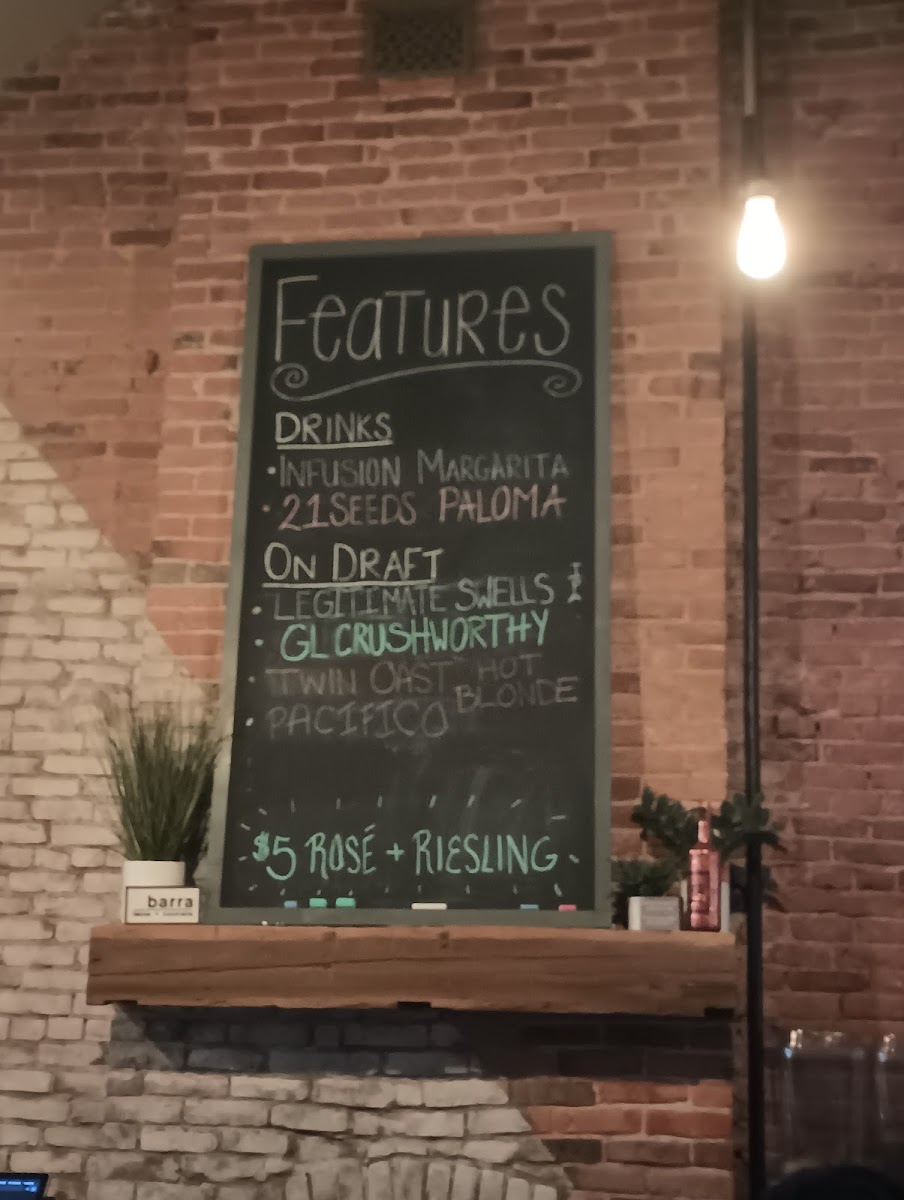 Features
DRINKS
• INFUSION MARGARITA
• 21SEEDS PALOMA
ON DRAFT
• LEGITIMATE SWELLS
• GL CRUSHWORTHY
• TWIN OAST HOT BLONDE
• PACIFICO
$5 ROSÉ + RIESLING
barra